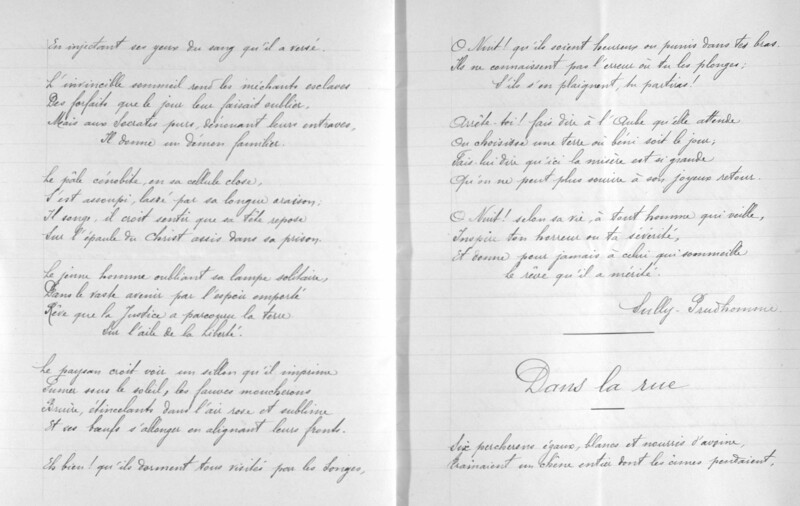 En injectant ses yeux du sang qu'il a versé.
L'invincible sommeil rend les méchants esclaves
Des forfaits que le jour leur faisait oublier,
Mais aux Socrates purs, dénouant leurs entraves,
Il donne un démon familier.
Le pâle cénobite, en sa cellule close,
S'est assoupi, lassé par sa longue oraison;
Il songe, il croit sentir que sa tête repose
Sur l'épaule du Christ assis dans sa prison.
Le jeune homme oubliant sa lampe solitaire,
Dans le vaste avenir par l'espoir emporté
Rêve que la Justice a parcouru la terre
Sur l'aile de la Liberté.
Le paysan croit voir un sillon qu'il imprime
Fumer sous le soleil, les fauves moucherons
Bruire, étincelants dans l'air rose et sublime
Et ses bœufs s'allonger en alignant leurs fronts.
Eh bien! qu'ils dorment tous visités par les songes,
O Nuit! qu'ils soient heureux ou punis dans tes bras.
Ils ne connaissent pas l'erreur où tu les plonges;
S'ils s'en plaignent, tu partiras!
Arrête-toi! fais dire à l'Aube qu'elle attende
Ou choisisse une terre où béni soit le jour;
Fais lui dire qu'ici la misère est si grande
Qu'on ne peut plus sourire à son joyeux retour.
O Nuit! selon sa vie, à tout homme qui veille,
Inspire ton horreur ou ta sérénité,
Et donne pour jamais à celui qui sommeille
Le rêve qu'il a mérité.
Sully-Prudhomme
Dans la rue
Six percherons égaux, blancs et nourris d'avoine,
Traînaient un chêne entier dont les cimes pendaient,